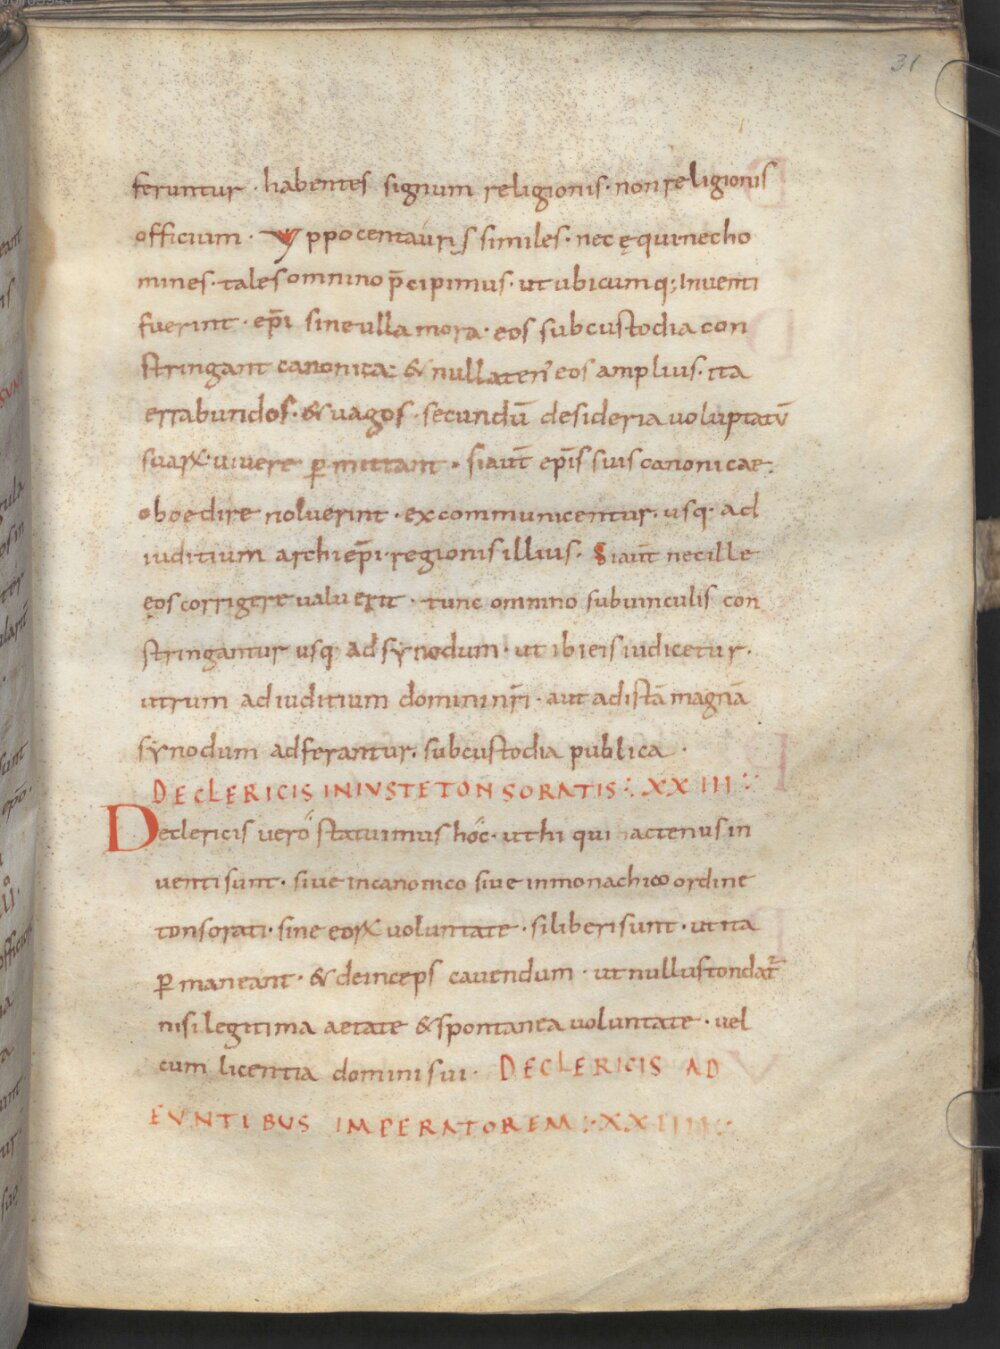 31
feruntur · habentes signum religionis · non religionis
officium · Yppocentauris similes · nec ęqui nec ho
mines · tales omnino p̄cipimus · ut ubicumq; inventi
fuerint · ep̄i sine ulla mora · eos sub custodia con
stringant canonica: & nullaten' eos amplius · ita
errabundos · & vagos · secundū desideria voluptatū
suaꝝ · vivere ꝑmittant · si aut̄ ep̄is suis canonicae
oboedire noluerint · excommunicentur · usq · ad
iuditium archiep̄i · regionis illius · Si aut̄ nec ille
eos corrigere valuerit · tunc omnino sub vinculis con
stringantur usq ad synodum · ut ibi eis iudicetur ·
utrum ad iuditium domini nr̄i · aut ad istā magnā
synodum adferantur · sub custodia publica ·
DE CLERICIS INIVSTE TONSORATIS : XXIII :
De clericis vero statuimus hoc · ut hi qui actenus in
venti sunt · sive in canonico sive in monachico ordine
tonsorati · sine eoꝝ voluntate · si liberi sunt · ut ita
ꝑmaneant · & deinceps cavendum · ut nullus tondat̄
nisi legitima aetate & spontanea voluntate · vel
cum licentia domini sui · DE CLERICIS AD
EVNTIBUS IMPERATOREM : XXIIII :